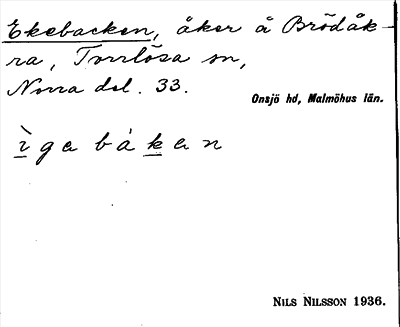 Ekebacken, åker å Brödåk-
ra, Torrlösa sn,
Norra del. 33.
Onsjö hd, Malmöhus län.
ìgabákan
NILS NILSSON 1936.